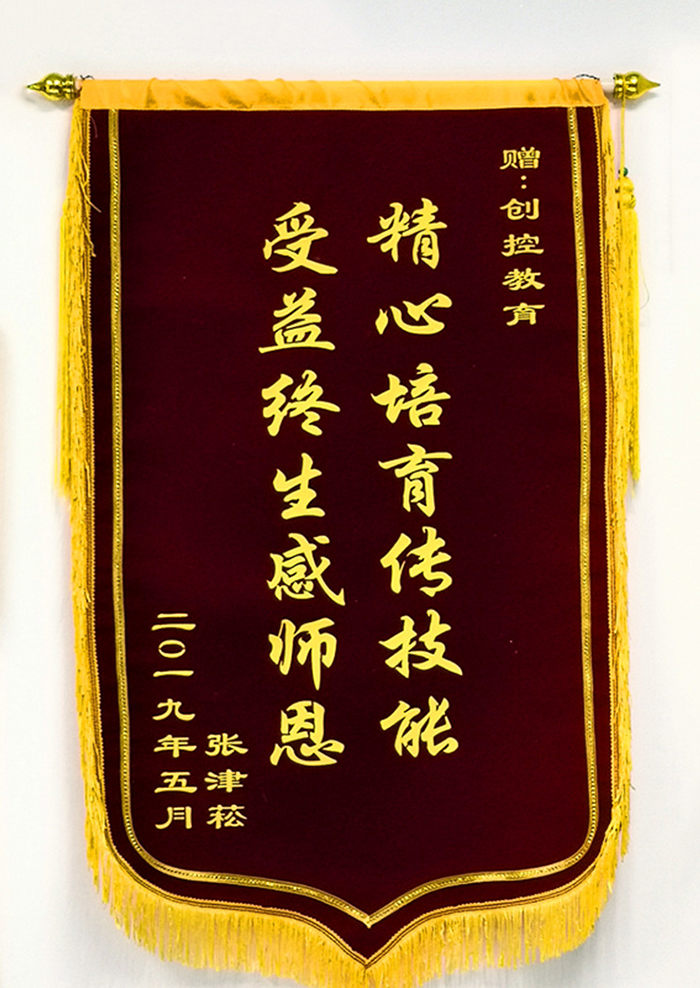 赠：创控教育
精心培育传技能
受益终生感师恩
张津菘
二〇一九年五月